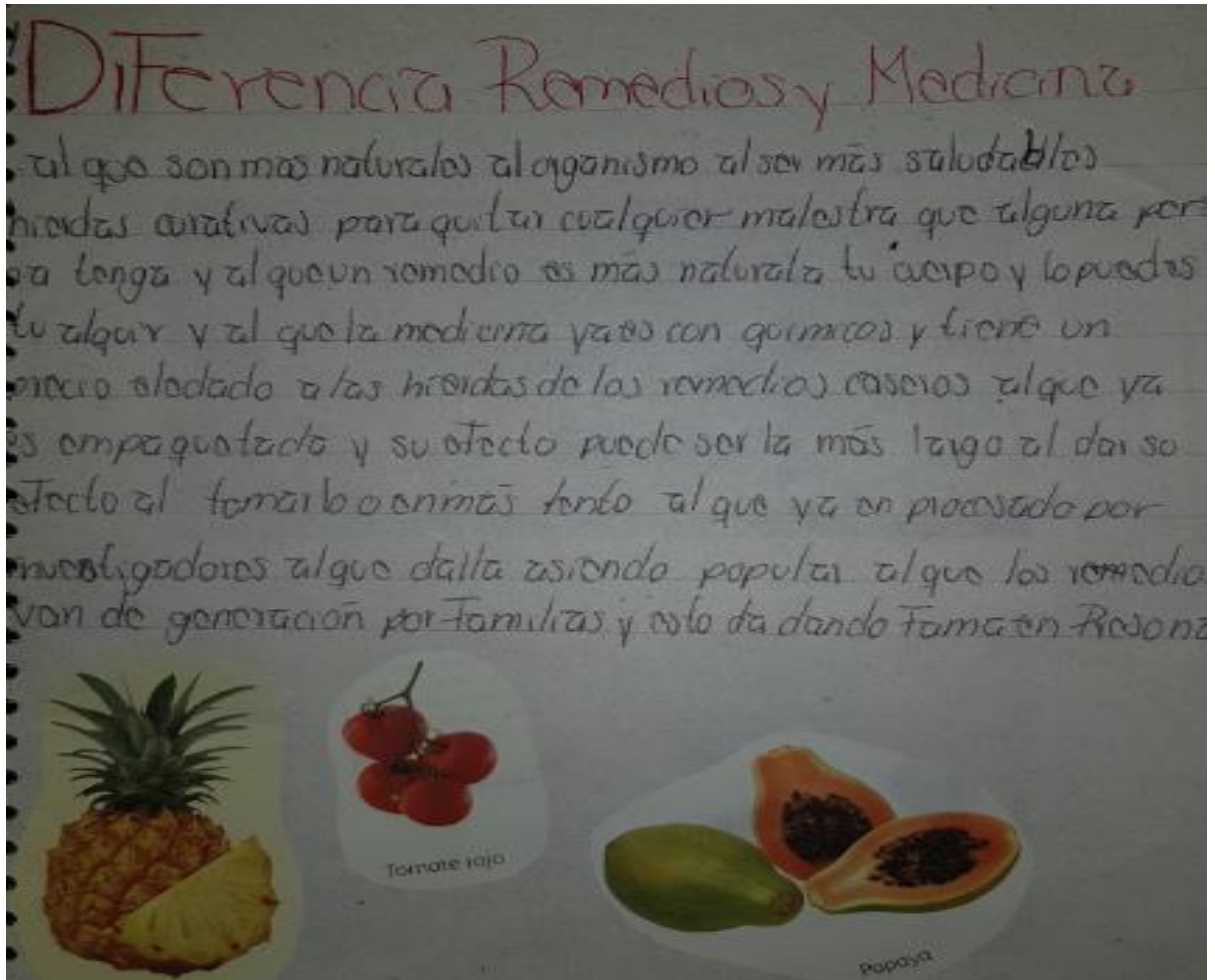 DiFerencia Remedios y Medicina
al que son mas naturales al organismo al ser más saludables
hierdas curativas para quitar cualquier malestra que alguna per
tenga y al que un remedio es más natural a tu cuerpo y lo puedes
tu al y al que la medicina ya es con quimicos y tiene un
a las hierdas de los remedios caseros al que ya
es empaquetada y su efecto puede ser la más largo al dar so
efecto al tomarlo o en más al que ya en procesado por
investigadores al que asiendo popular al que los remedio
van de generación por Familias y esto da dando Fama en
Tomate rojo
Papaya